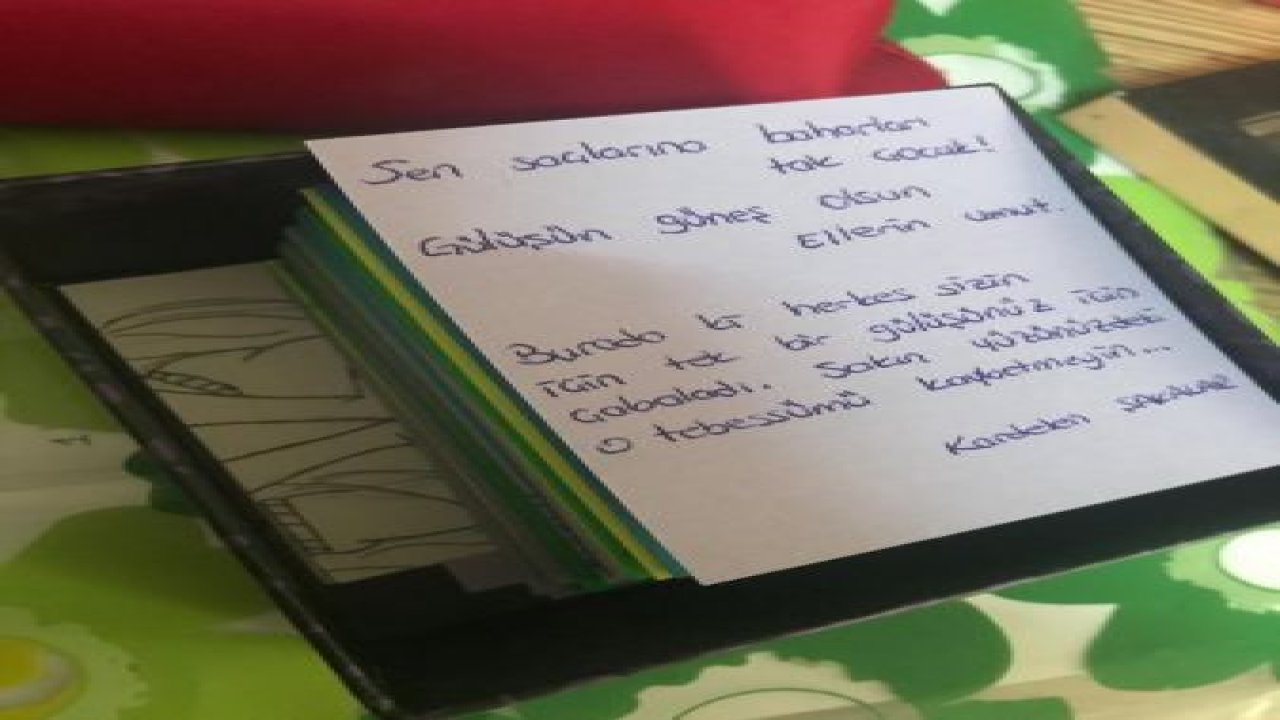 Sen saçlarına baharları
tak çocuk!
Gülüşün güneş olsun
Ellerin umut.
Burada ki herkes sizin
için tek bir gülüşünüz için
çabaladı. Sakın yüzünüzdeki
o tebessümü kaybetmeyin...
Kardelen